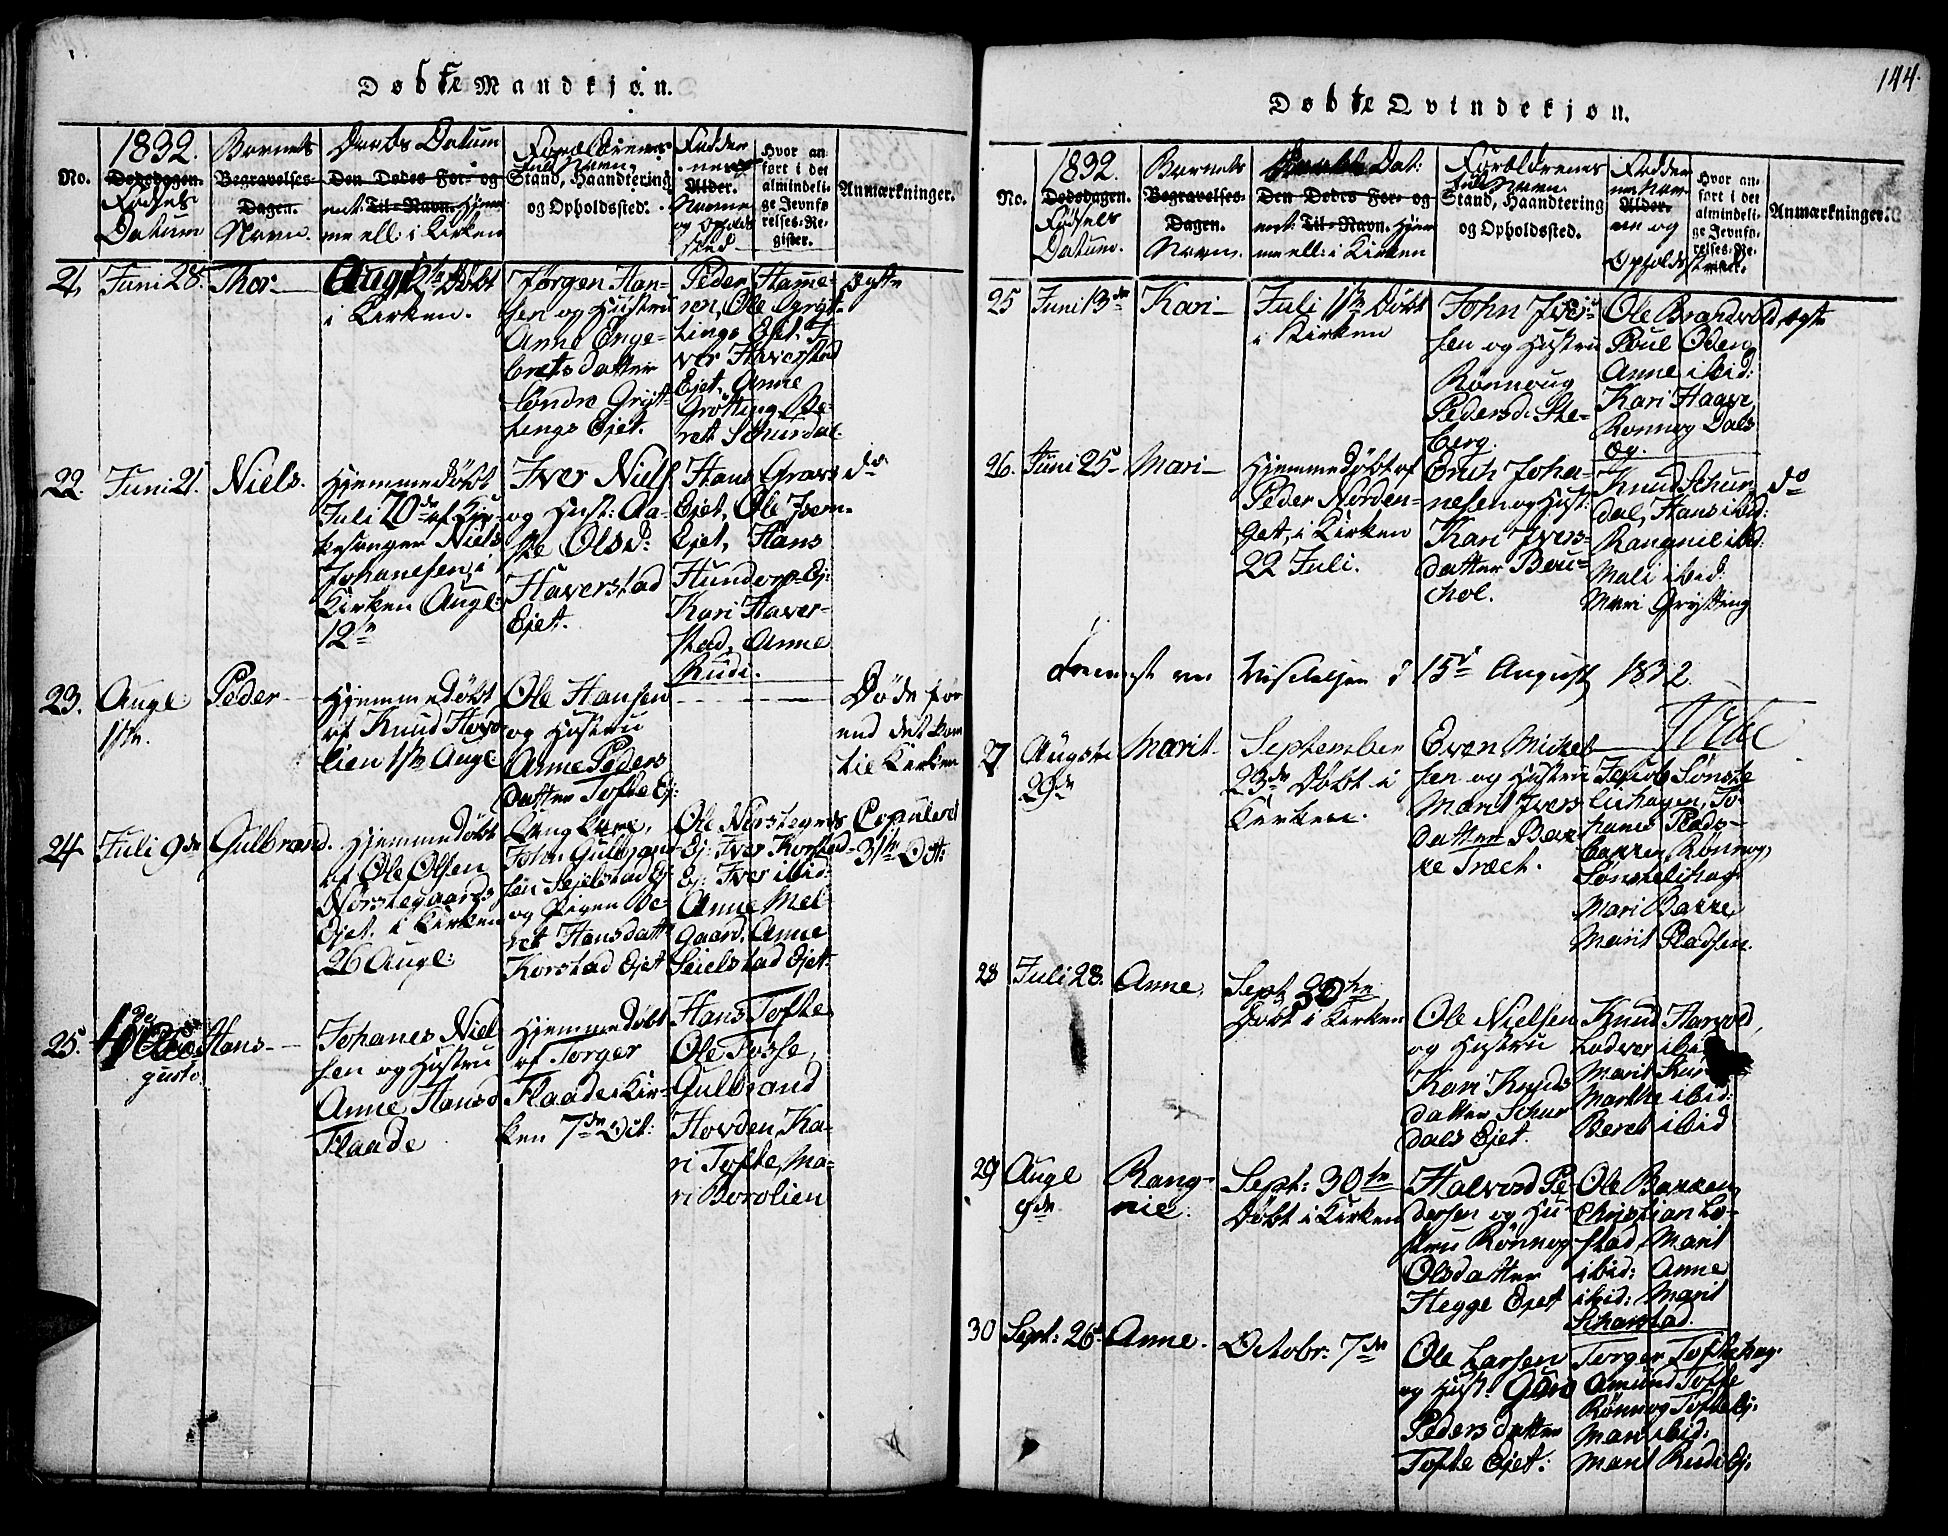 Døbte Mandkjøn.
No.
1832.
Dødsdagen.
Fødsels
Datum
Barnets
Begravelses-
Dagen.
Navn.
Daabs Datum
Den Dødes For- og
ent: Til-Navn. Hjem
me ell: i Kirken
Forældrenes
fulde Navn,
Stand, Haandtering
og Opholdssted.
Fadder
nes
Alder.
Navne
og Opholds
sted
Hvor an-
ført i det
almindeli-
ge Jevnfø-
relses-Re-
gister.
Anmærkninger.
21. Juni 28. Thor
Aug 12te Døbt
i Kirken.
Jørgen Han-
sen og Hustru
Anne Enge-
bretsdatter
søndre Grytt-
tings Ejet.
Peder Hame-
ren, Ole Gryt-
tings Ejet, I-
ver Haverstad
Ejet, Anne
Grötting, Be-
ret Schurdal.
ægte
22. Juni 21. Niels.
Hjemmedøbt
Juli 20de af Kir-
kesanger Niels
Johanesen, i
Kirken Augl:
12te
Iver Niels
og Hust: Aa-
se Olsd:
Haverstad
Ejet.
Hans Gravs
Ejet, Ole Isem-
Ejet, Hans
Hundorp-Ej:
Kari Haver-
stad, Anne
Rudi.
do
23. Augl 1ste. Peder
Hjemmedøbt
af Knud Hovo
lien 1ste Augl
Ole Hansen
og Hustru
Anne Peders
datter Tofte Ej:
Døde før
end det kom
til Kirken
24. Juli 9de Gulbrand.
Hjemmedøbt
af Ole Olsen
Nörstegaards
Ejet. i Kirken
26 Augl:
Ungkarl,
John Gulbrand
sen Sejelstad Ej
og Pigen Be-
ret Hansdatt
Korstad Ejet
Ole Nörstegrds
Ej: Iver Korstad-
Ej: Iver ibid:
Anne Mel-
gaard, Anne
Seielstad Ejet:
Copuleret
31te Oct:
25.
gusto.
Hans
Johanes Niel
sen og Hustru
Anne Hansd
Flaade
Hjemmedøbt
af Torger
Flaade i Kir-
ken 7de Oct:
Hans Tofte
Ole Fosse,
Gulbrand
Hovden, Ka-
ri Tofte, Ma-
ri Borolien
144.
Døbte Qvindekjøn.
No.
1832.
Dødsdagen.
Fødsels
Datum.
Barnets
Begravelses-
Dagen.
Navn.
Daabs Dat:
Den Dødes For- og
ent: Til-Navn. Hjem
me ell: i Kirken
Forældrenes
fulde Navn
Stand, Haandtering
og Opholdssted.
Fadder
nes Nav
Alder.
ne og
Opholdssted.
Hvor an-
ført i det
almindeli-
ge Jevnfø-
relses-Re-
gister.
Anmærkninger.
25 Juni 13de Kari
Juli 1ste Døbt
i Kirken
John Iver
sen og Hustru
Rönnoug
Pedersd: Ste-
berg.
Ole Brandvold
Poul Öden
Anne ibid:
Kari Haave
Ronnog Dals
Og.
ægte
26. Juni 25 Mari
Hjemmedøbt af
Peder Norden-
get, i Kirken
22 Juli.
Erich Joha-
nesen og Hust:
Kari Ivers-
datter Bou-
chol.
Knud Schur-
dal, Hans ibid:
Rangnil ibid:
Mali ibid.
Mari Grytting
do
15de August 1832.
27 Augsti 29de Marit
September
23de Døbt i
Kirken.
Even Mickel
sen og Hustru
Marit Ivers
datter Bak
ke Træet.
Jacob Sönste
lihagen, Jo-
hanes Plads-
bakken, Rönnog
Sönstelihag
Mari Bakke,
Marit Pladsen.
28 Juli 28. Anne.
Sept 30te
Døbt i Kirken
Ole Nielsen
og Hustru
Kari Knuds
datter Schur
dals Ejet.
Knud Harvold,
Lodver ibid
Marit
Marthe ibid:
Beret ibid
29 Augl 9de Rang-
nie.
Sept: 30te
Døbt i Kirken
Halvord Pe-
dersen og Hu-
stru Rönnog
Olsdatter
Hegge Ejet
Ole Bakken,
Christian Lo-
stad, Marit
ibid: Anne
ibid: Marit
Scharstad.
30 Sept: 26de Anne.
Octobr: 7de
Ole Larsen
og Hust: Guro
Pedersdatter
Tofte Ejet:
Torger Toftehag.
Amund Tofte
Rönnog Tofte Ej.
Mari ibid:
Marit Rudi Ej.